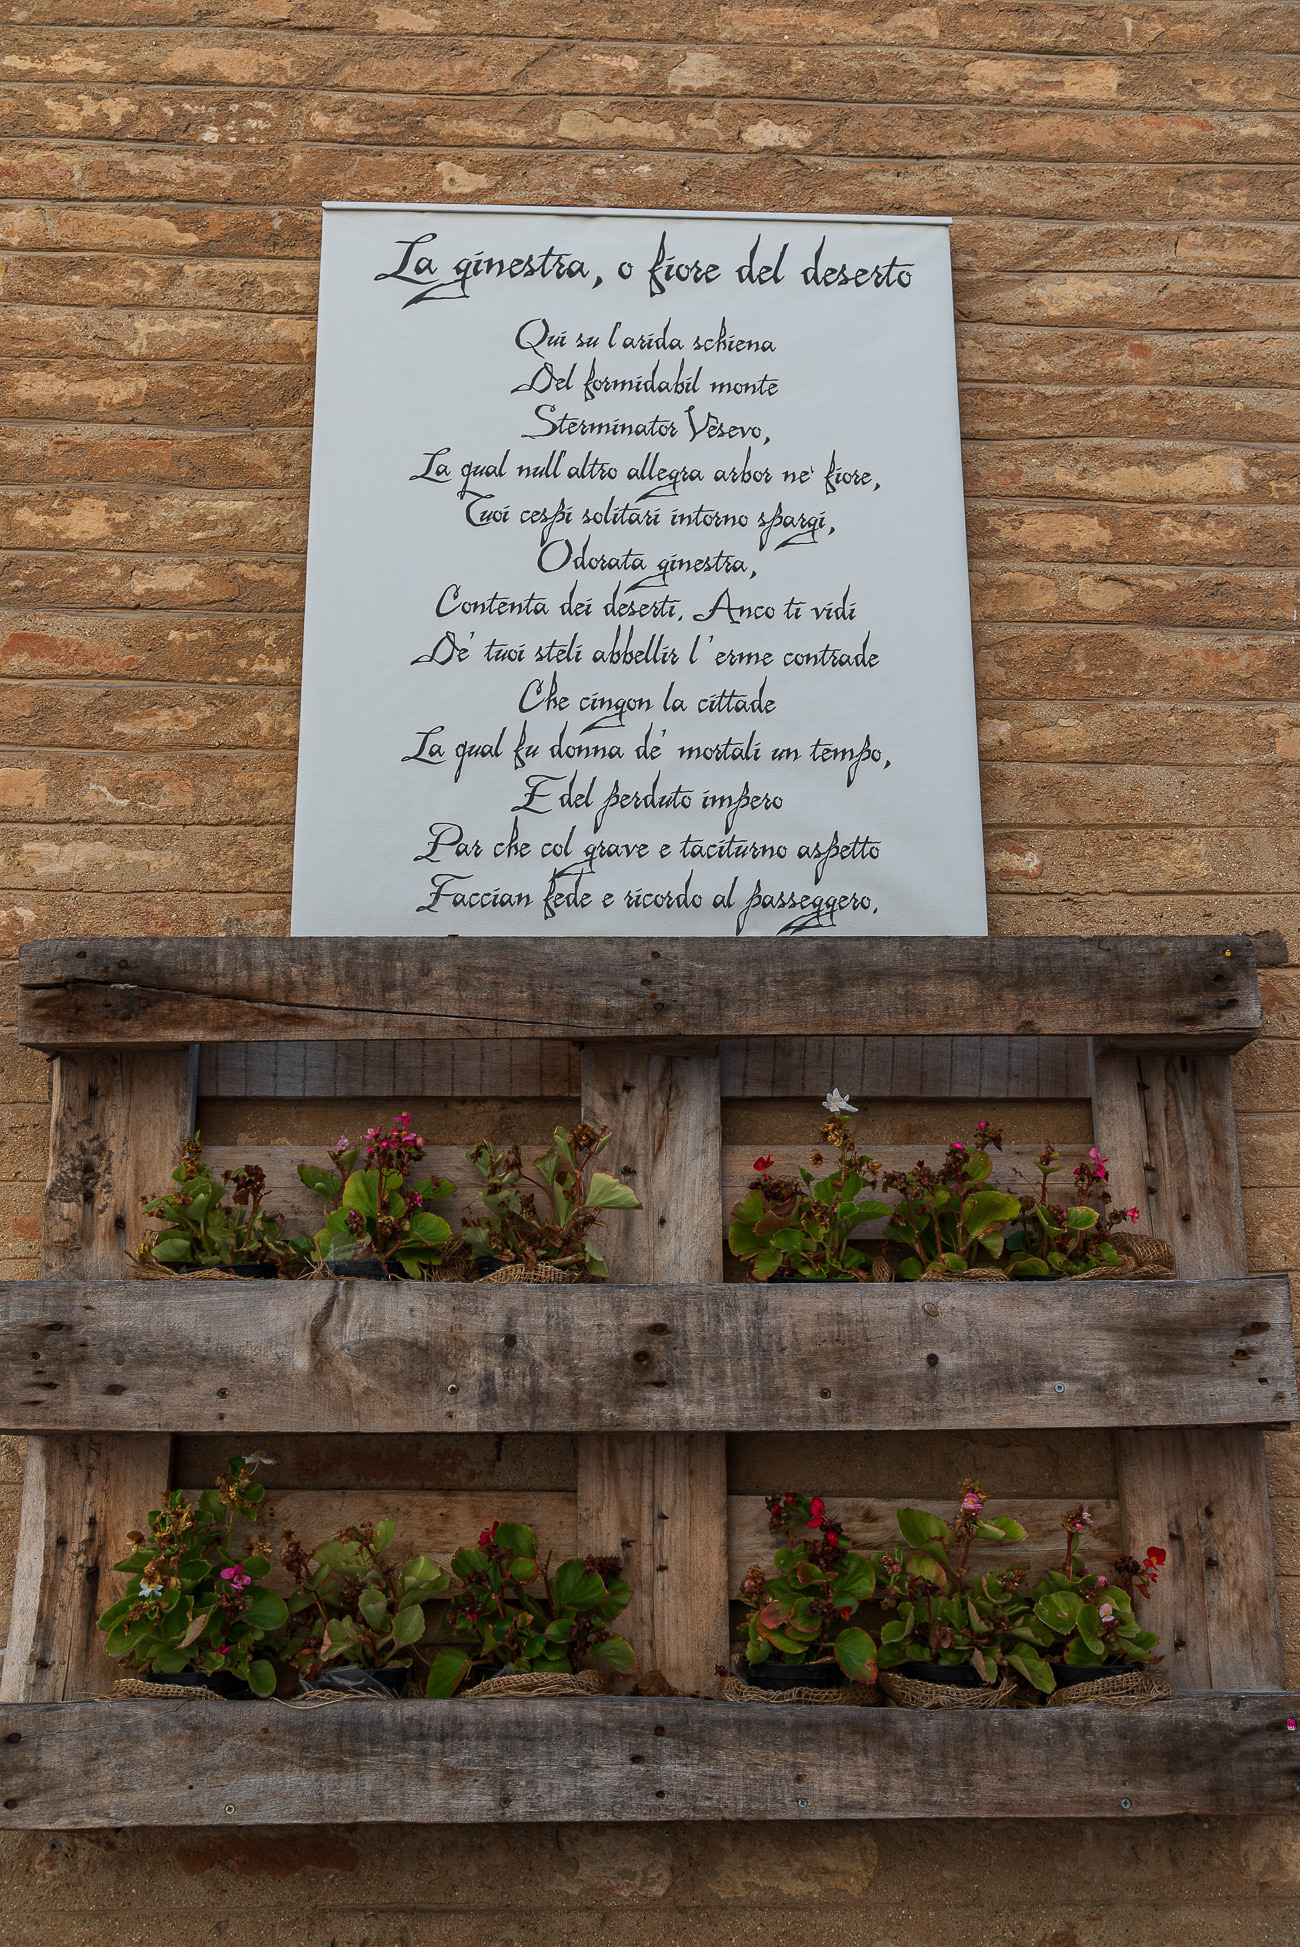 La ginestra, o fiore del deserto
Qui su l'arida schiena
Del formidabil monte
Sterminator Vèsevo,
La qual null'altro allegra arbor ne' fiore,
Tuoi cespi solitari intorno spargi,
Odorata ginestra,
Contenta dei deserti. Anco ti vidi
De' tuoi steli abbellir l'erme contrade
Che cingon la cittade
La qual fu donna de' mortali un tempo,
E del perduto impero
Par che col grave e taciturno aspetto
Faccian fede e ricordo al passeggero.